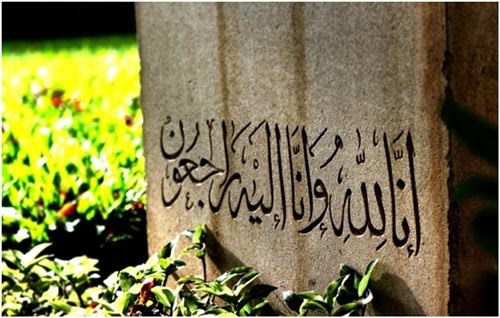 إنَّا لِلّهِ وُانَّا إليْهِ راجعون